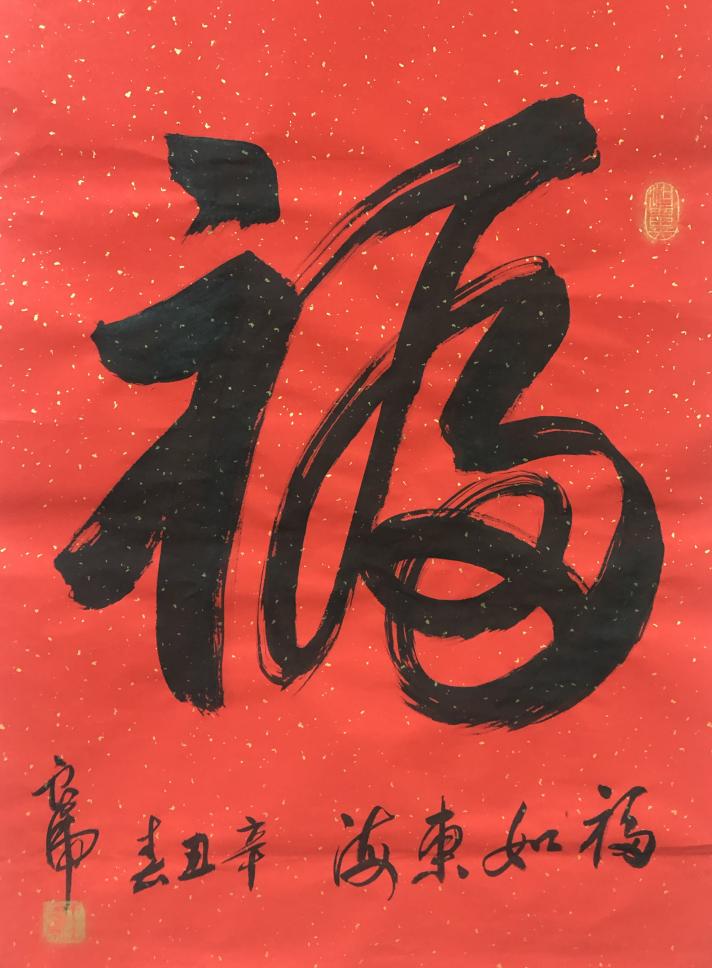 福
福如东海
辛丑春